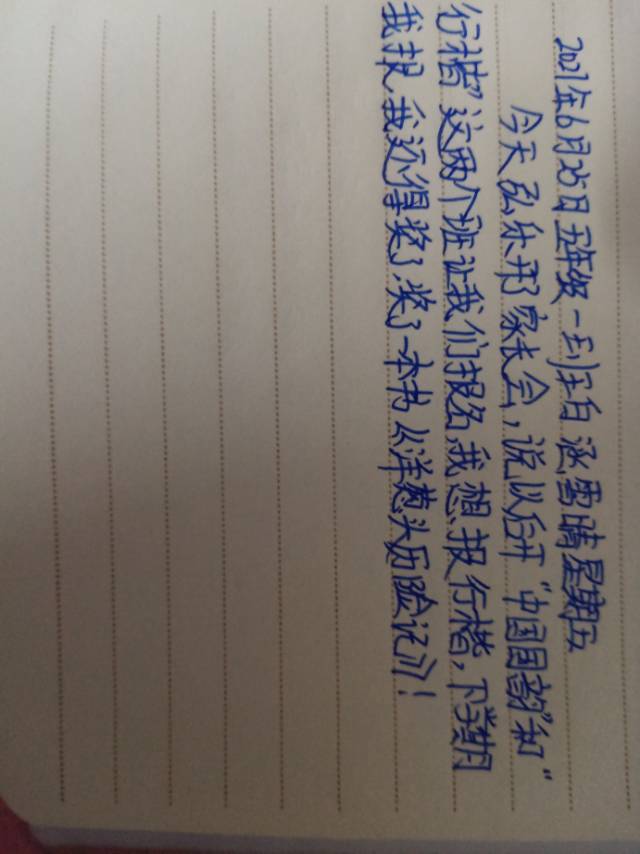 2021年6月25日 五年级一班 白涵雪 晴 星期五
今天弘乐开了家长会，说以后开“中国国韵”和“
行楷”这两个班让我们报名，我想报行楷，下学期
我报，我还得奖了，奖了一本书《洋葱头历险记》！